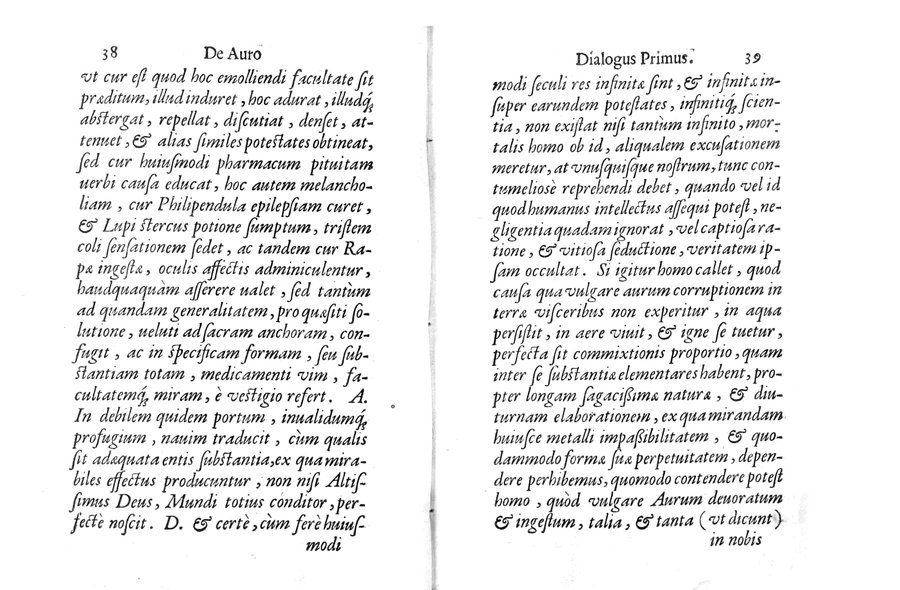 38 De Auro
vt cur eſt quod hoc emolliendi facultate ſit
præditum, illud induret, hoc adurat, illudq́;
abſtergat, repellat, diſcutiat, denſet, at-
tenuet, & alias ſimiles poteſtates obtineat,
ſed cur huiuſmodi pharmacum pituitam
uerbi cauſa educat, hoc autem melancho-
liam, cur Philipendula epilepſiam curet,
& Lupi ſtercus potione ſumptum, triſtem
coli ſenſationem ſedet, ac tandem cur Ra-
pæ ingeſtæ, oculis affectis adminiculentur,
haudquaquàm aſſerere ualet, ſed tantùm
ad quandam generalitatem, pro quæſiti ſo-
lutione, ueluti ad ſacram anchoram, con-
fugit, ac in ſpecificam formam, ſeu ſub-
ſtantiam totam, medicamenti vim, fa-
cultatemq́; miram, è veſtigio refert. A.
In debilem quidem portum, inualidumq́;
profugium, nauim traducit, cùm qualis
ſit adæquata entis ſubſtantia, ex qua mira-
biles effectus producuntur, non niſi Altiſ-
ſimus Deus, Mundi totius conditor, per-
fectè noſcit. D. & certè, cùm ferè huiuſ-
modi
Dialogus Primus. 39
modi ſeculi res infinitæ ſint, & infinitæ in-
ſuper earundem poteſtates, infinitiq́; ſcien-
tia, non exiſtat niſi tantùm infinito, mor-
talis homo ob id, aliqualem excuſationem
meretur, at vnuſquiſque noſtrum, tunc con-
tumelioſè reprehendi debet, quando vel id
quod humanus intellectus aſſequi poteſt, ne-
gligentia quadam ignorat, vel captioſa ra-
tione, & vitioſa ſeductione, veritatem ip-
ſam occultat. Si igitur homo callet, quod
cauſa qua vulgare aurum corruptionem in
terræ viſceribus non experitur, in aqua
perſiſtit, in aere viuit, & igne ſe tuetur,
perfecta ſit commixtionis proportio, quam
inter ſe ſubſtantiæ elementares habent, pro-
pter longam ſagaciſſimæ naturæ, & diu-
turnam elaborationem, ex qua mirandam
huiuſce metalli impaſſibilitatem, & quo-
dammodo formæ ſuæ perpetuitatem, depen-
dere perhibemus, quomodo contendere poteſt
homo, quòd vulgare Aurum deuoratum
& ingeſtum, talia, & tanta (vt dicunt)
in nobis